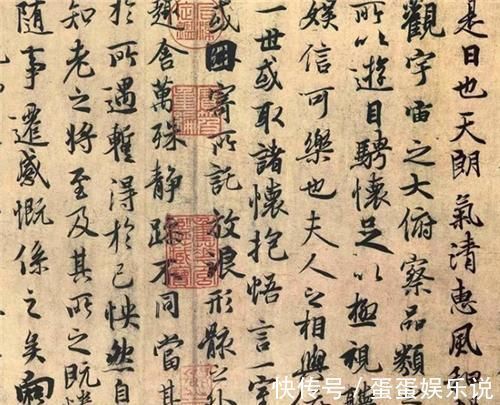 是日也天朗氣清惠風和
觀宇宙之大俯察品類
所以遊目騁懷足以極視聽
娛信可樂也夫人之相與
一世或取諸懷抱悟言一室
或因寄所託放浪形骸之外
趣舍萬殊靜躁不同當其
於所遇暫得於己怏然自
知老之將至及其所之既惓
隨事遷感慨係之矣向
快传号 / 蛋蛋娱乐说